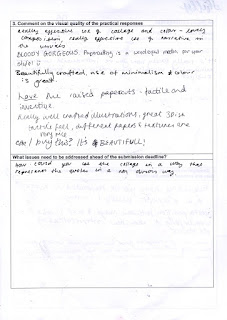 3. Comment on the visual quality of the practical responses
Really effective use of collage and colour - lovely
composition, really effective use of narrative in
the
BLOODY GORGEOUS. Papercutting is a wonderful medium for your
Beautifully crafted, use of minimalism & colour
is great.
Love the raised papercuts - tactile and
inventive.
Really well crafted illustrations. great 3D
tactile feel, different papers & textures are
very nice
can I buy this? It's BEAUTIFUL!
What issues need to be addressed ahead of the submission deadline?
How could you use the collage in a way that
represents the in a non obvious way